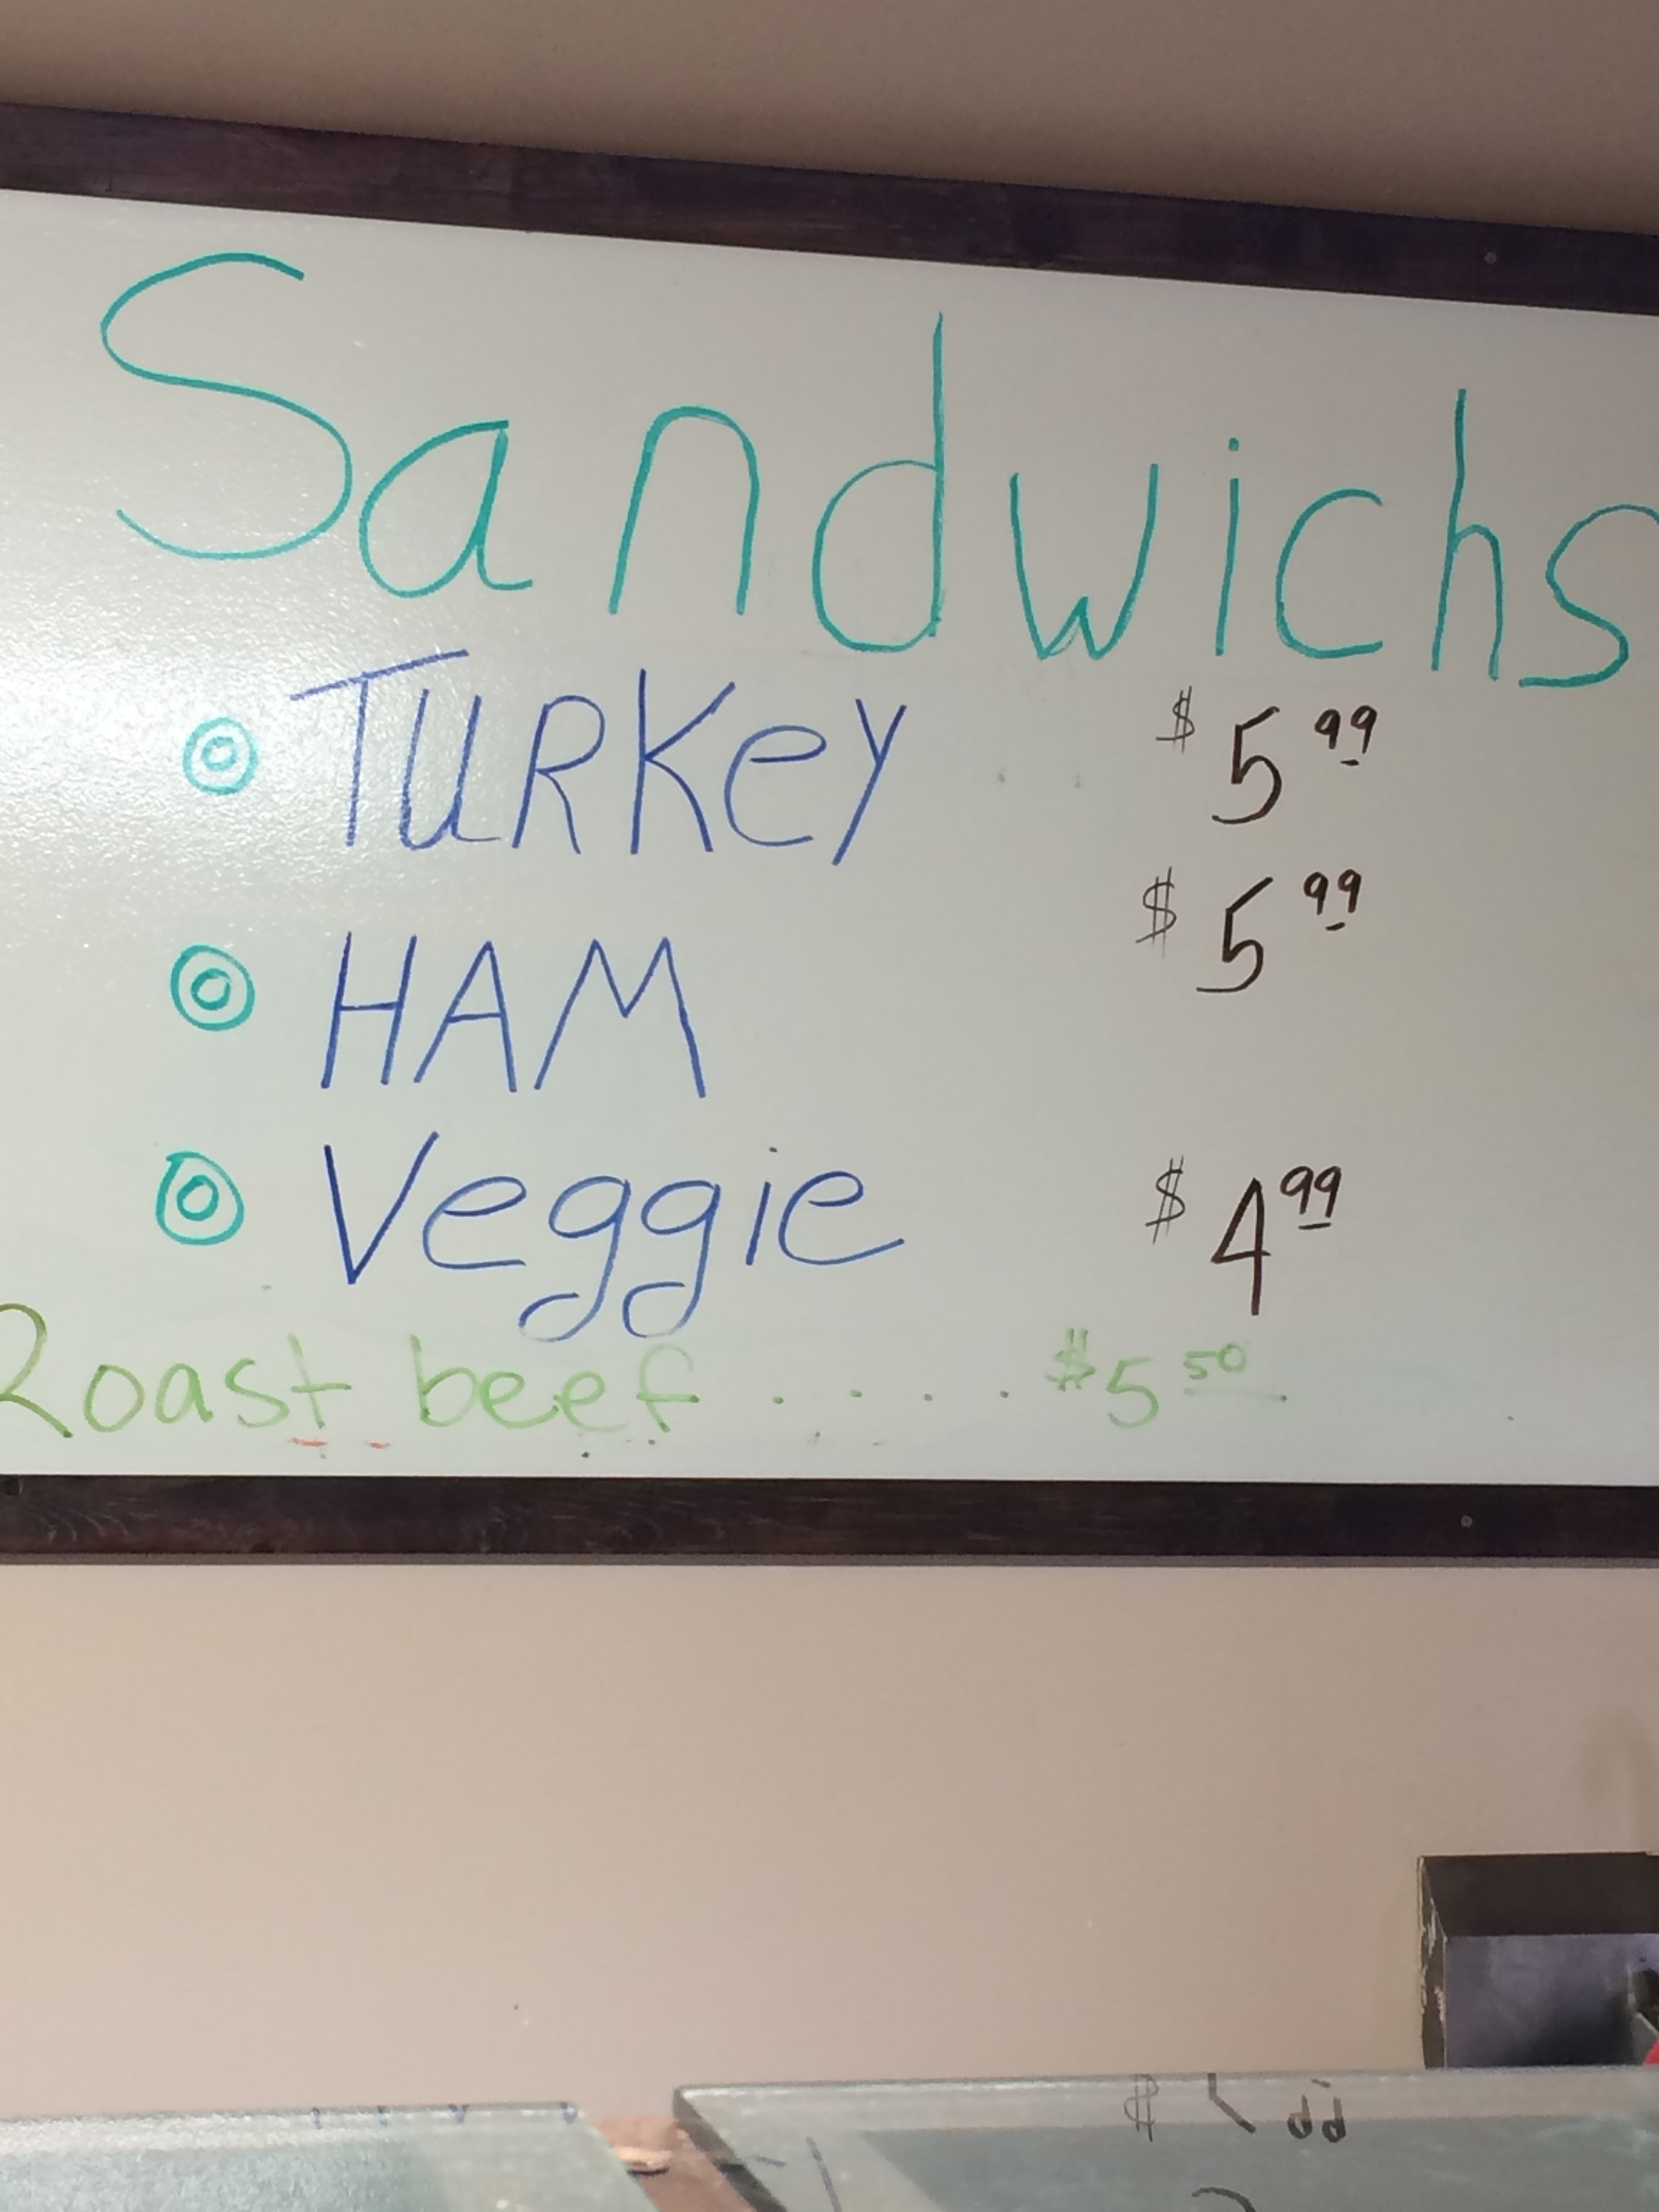 Sandwichs
TURKey $5.99
HAM $5.99
Veggie $4.99
Roast beef ..... $5.50